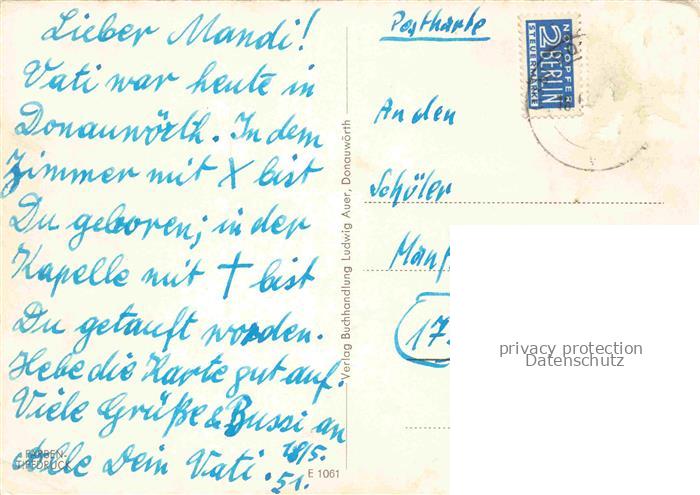 Lieber Mandi!
Vati war heute in
Donauwörth. In dem
Zimmer mit X bist
Du geboren; in der
Kapelle mit † bist
Du getauft worden.
Hebe die Karte gut auf.
Viele Grüße & Bussi an
alle Dein Vati. 18/5.
51.
FARBEN-
TIEFDRUCK
E 1061
Verlag Buchhandlung Ludwig Auer, Donauwörth
Postkarte
NOTOPFER
2 BERLIN
STEUERMARKE
An den
Schüler
(17.
privacy protection
Datenschutz